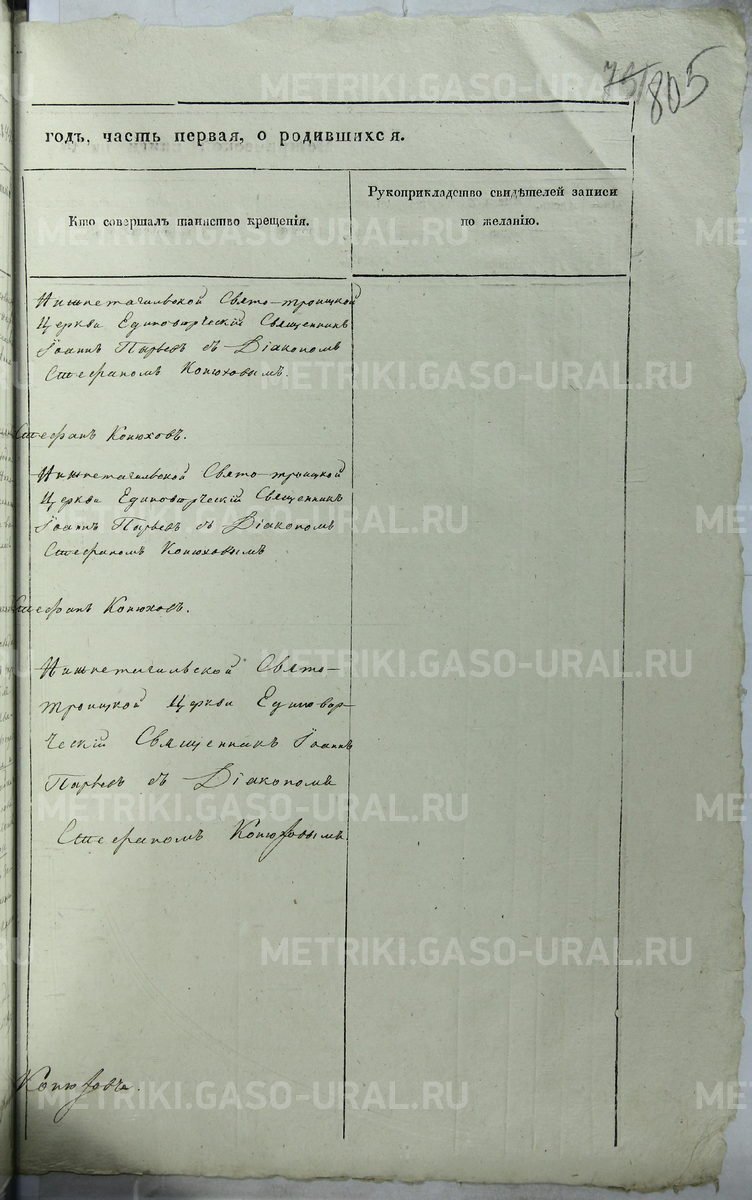 805
годъ, часть первая, о родившихся.
Кто совершалъ таинство крещенія.
Рукоприкладство свидѣтелей записи
по желанію.
Нижнетагильской Свято-троицкой
Церкви Единовѣрческій Священникъ
Іоаннъ Пырьевъ съ Діакономъ
Стефаномъ Конюховымъ.
Стефанъ Конюховъ.
Нижнетагильской Свято-троицкой
Церкви Единовѣрческій Священникъ
Іоаннъ Пырьевъ съ Діакономъ
Стефаномъ Конюховымъ
Стефанъ Конюховъ.
Нижнетагильской Свято-
троицкой Церкви Единовѣр-
ческій Священникъ Іоаннъ
Пырьевъ съ Діакономъ
Стефаномъ Конюховымъ.
Конюховъ.
METRIKI.GASO-URAL.RU